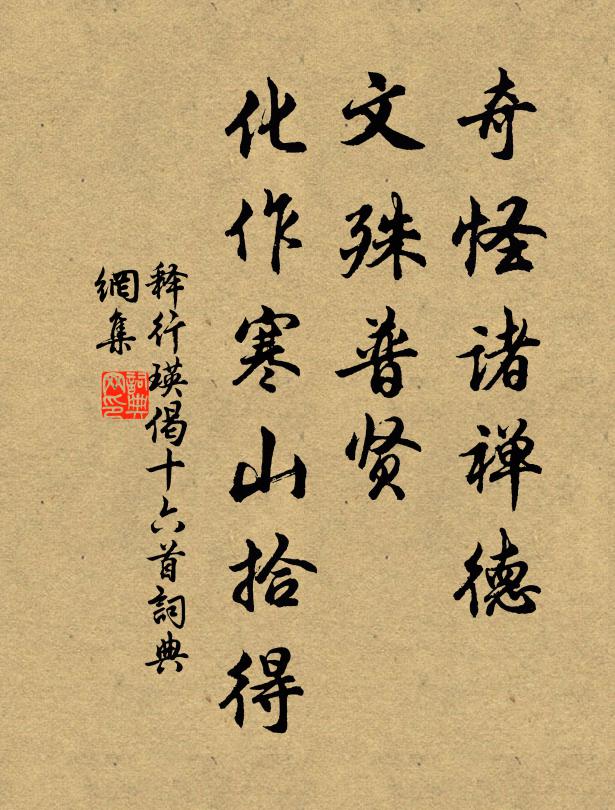 奇怪诸禅德
文殊普贤
化作寒山拾得
释行瑛偈十六首詞典
網集
詞典
网印